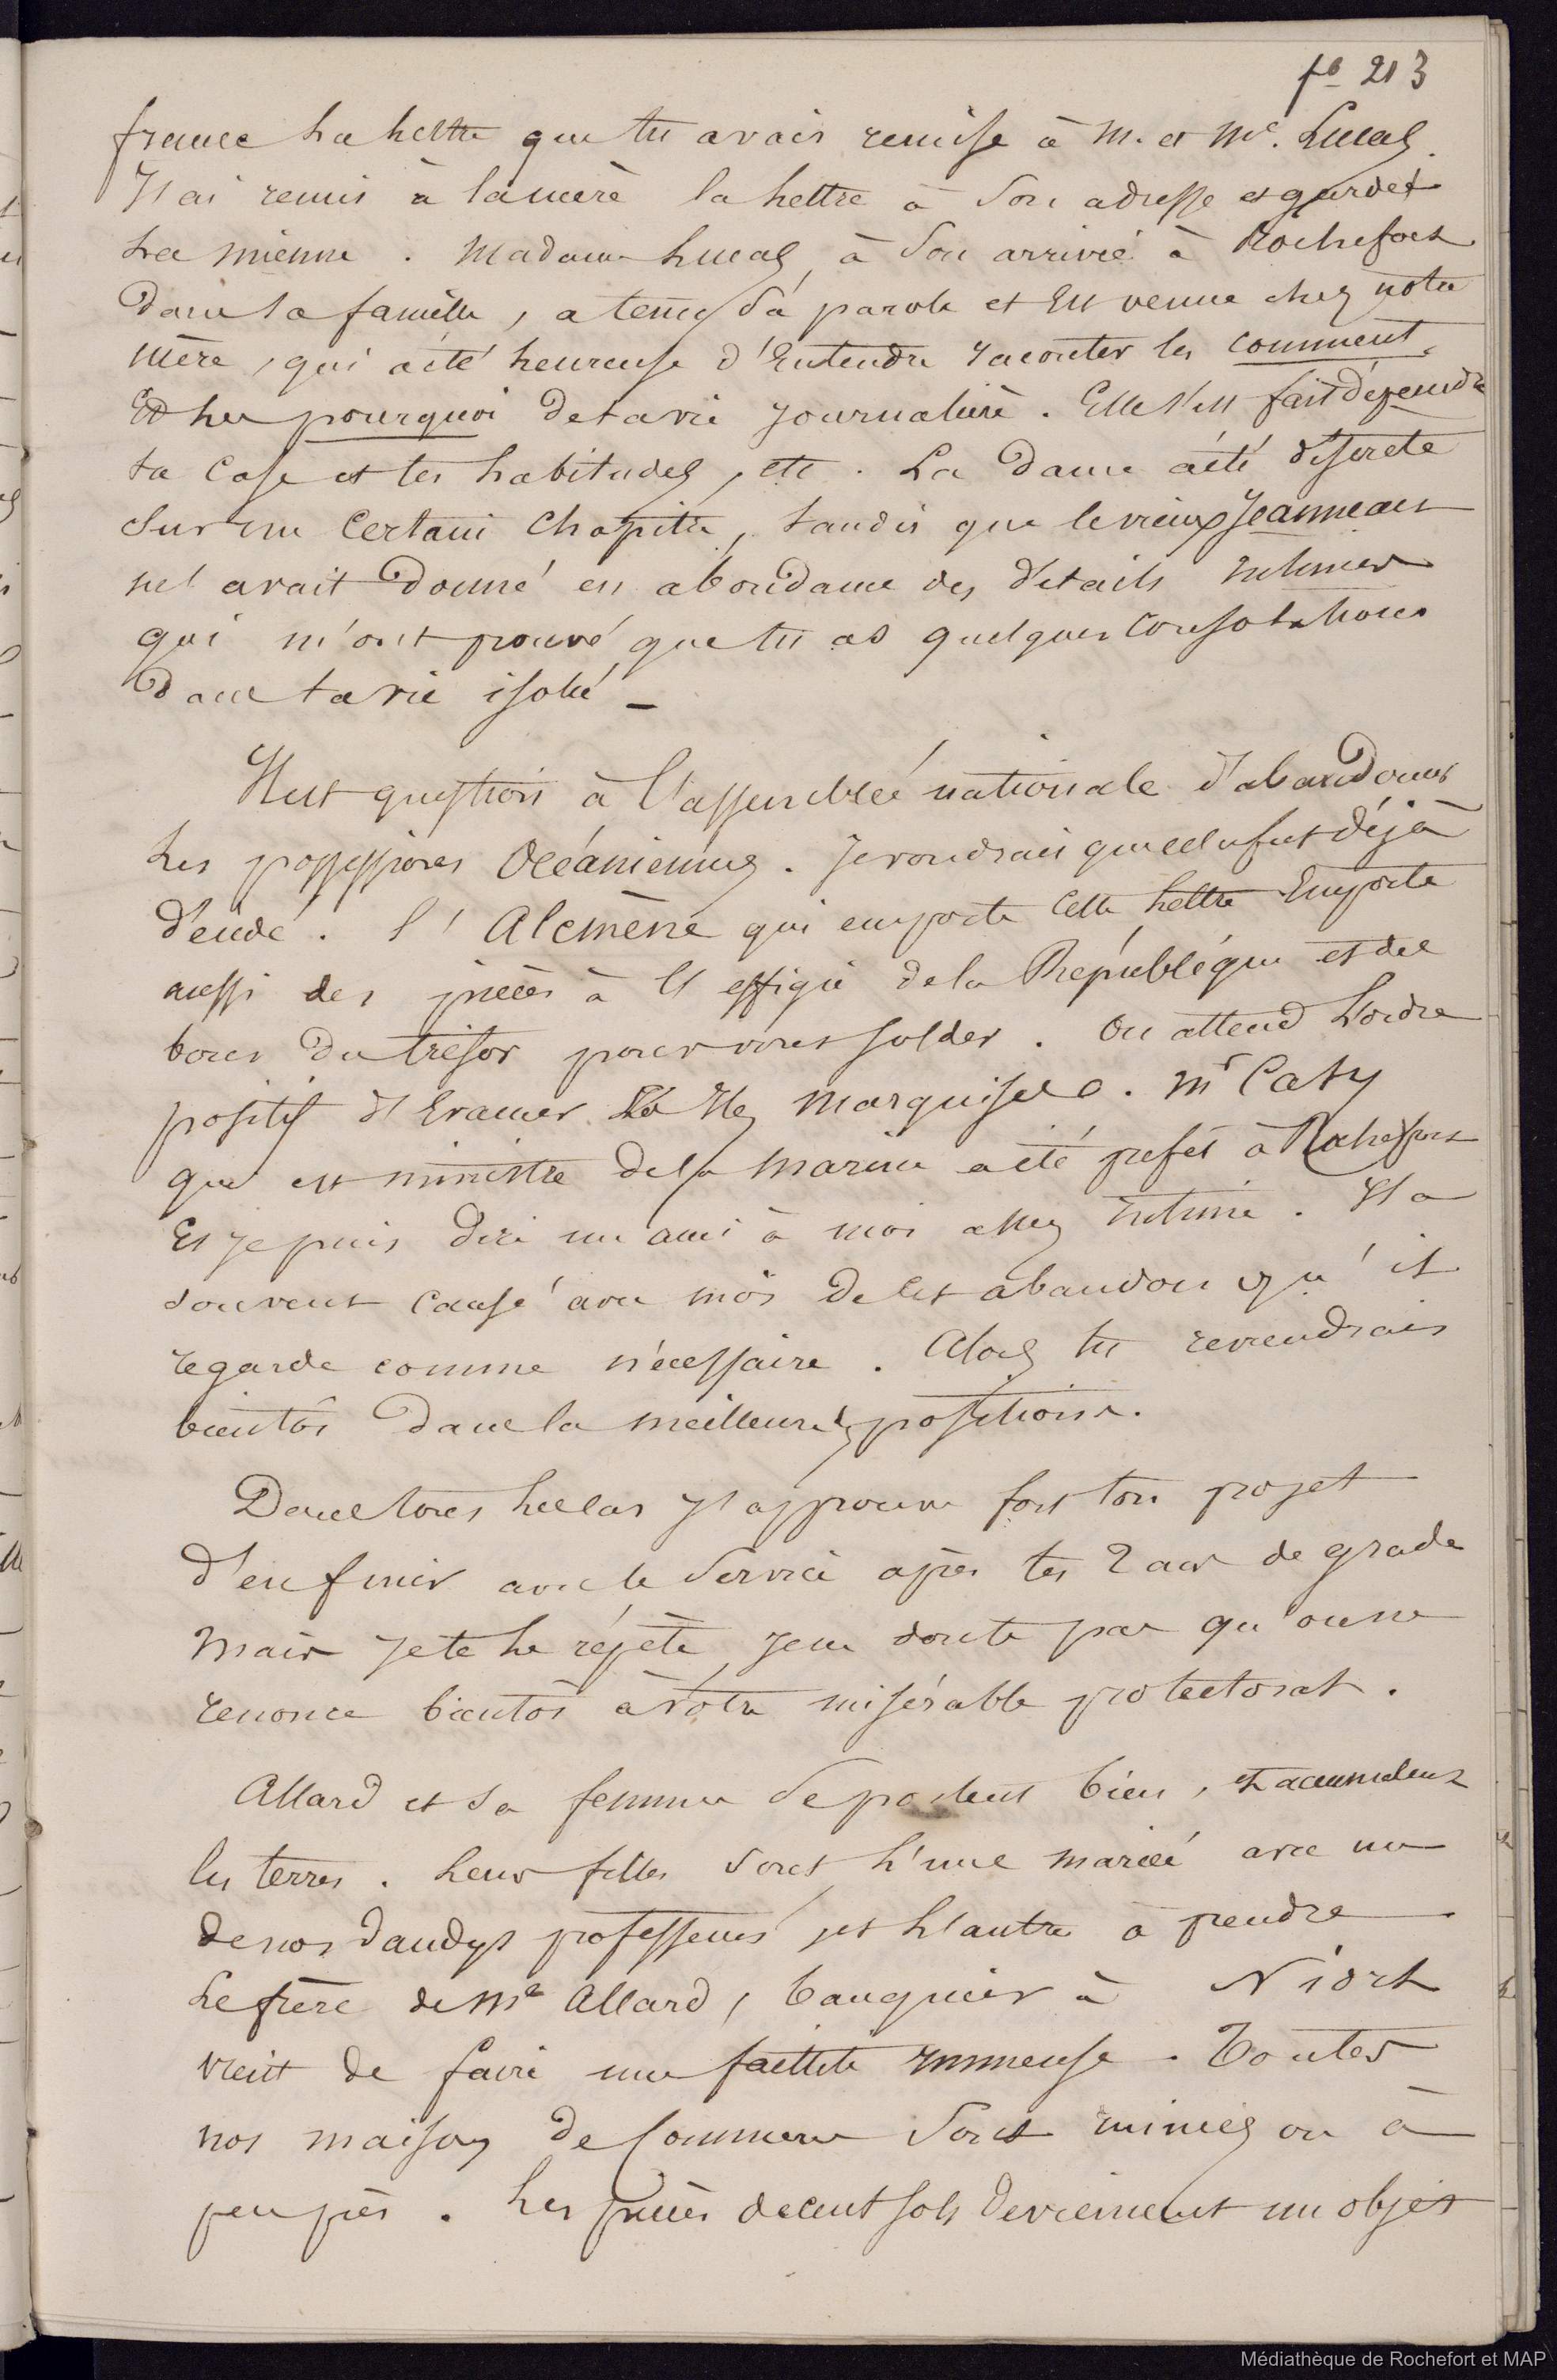 fo 213
france La Lettre que tu avais remise à M. et Me. Lucas.
J'ai remis à la mère la Lettre à Son adresse et gardé
La mienne. Madame Lucas, à Son arrivée à Rochefort
Dans Sa famille, a tenu Sa parole et Est venue chez notre
Mère, qui a été heureuse d'Entendre raconter les comment,
Et Les pourquoi de ta vie Journalière. Elle s'est fait dépeindre
ta Case et tes habitudes, etc. La Dame a été discrete
Sur un Certain Chapitre, tandis que le vieux Jeanneau
m'avait Donné en abondance des détails intimes
qui m'ont prouvé que tu as quelques Consolations
Dans ta vie isolée _
Il est question à l'assemblée nationale d'abandonner
Les possessions Océaniennes. Je voudrais que cela fut déjà
décidé. l'Alcmène qui emporte Cette Lettre Emporte
aussi des pièces à l'effigie de la République et des
bons Du trésor pour vous solder. On attend L'ordre
positif d'Evacuer Les Iles Marquises. Mr Casy
qui est ministre de la Marine a été préfet à Rochefort
Et je puis Dire un ami à moi assez intime. Il a
Souvent Causé avec moi De cet abandon qu'il
regarde comme nécessaire. Alors tu reviendrais
bientôt Dans la meilleure position.
Dans tous les cas J'approuve fort ton projet
d'en finir avec le Service après tes 2 ans de grade
Mais Je te Le répète, Je ne doute pas qu'on ne
renonce bientôt à votre misérable protectorat.
Allard et Sa femme Se portent bien, et accumulent
les terres. Leurs filles Sont L'une mariée avec un
de nos dandys professeurs et L'autre à prendre
Le frère de Me Allard, banquier à Niort
vient de faire une faillite immense. Toutes
nos maisons De Commerce Sont ruinées ou à
peu près. Les pièces de cent sols Deviennent un objet
Médiathèque de Rochefort et MAP